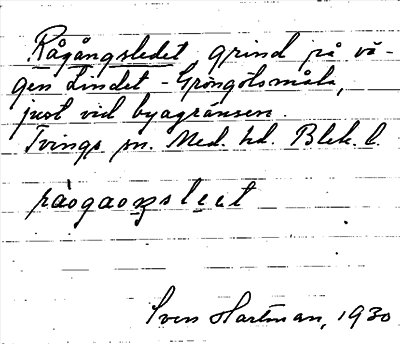 Rågångsledet grind på vä-
gen Lindet - Gröngölsmåla,
just vid byagränsen.
Tvings sn. Med. hd. Blek. l.
Sven Hartman, 1930